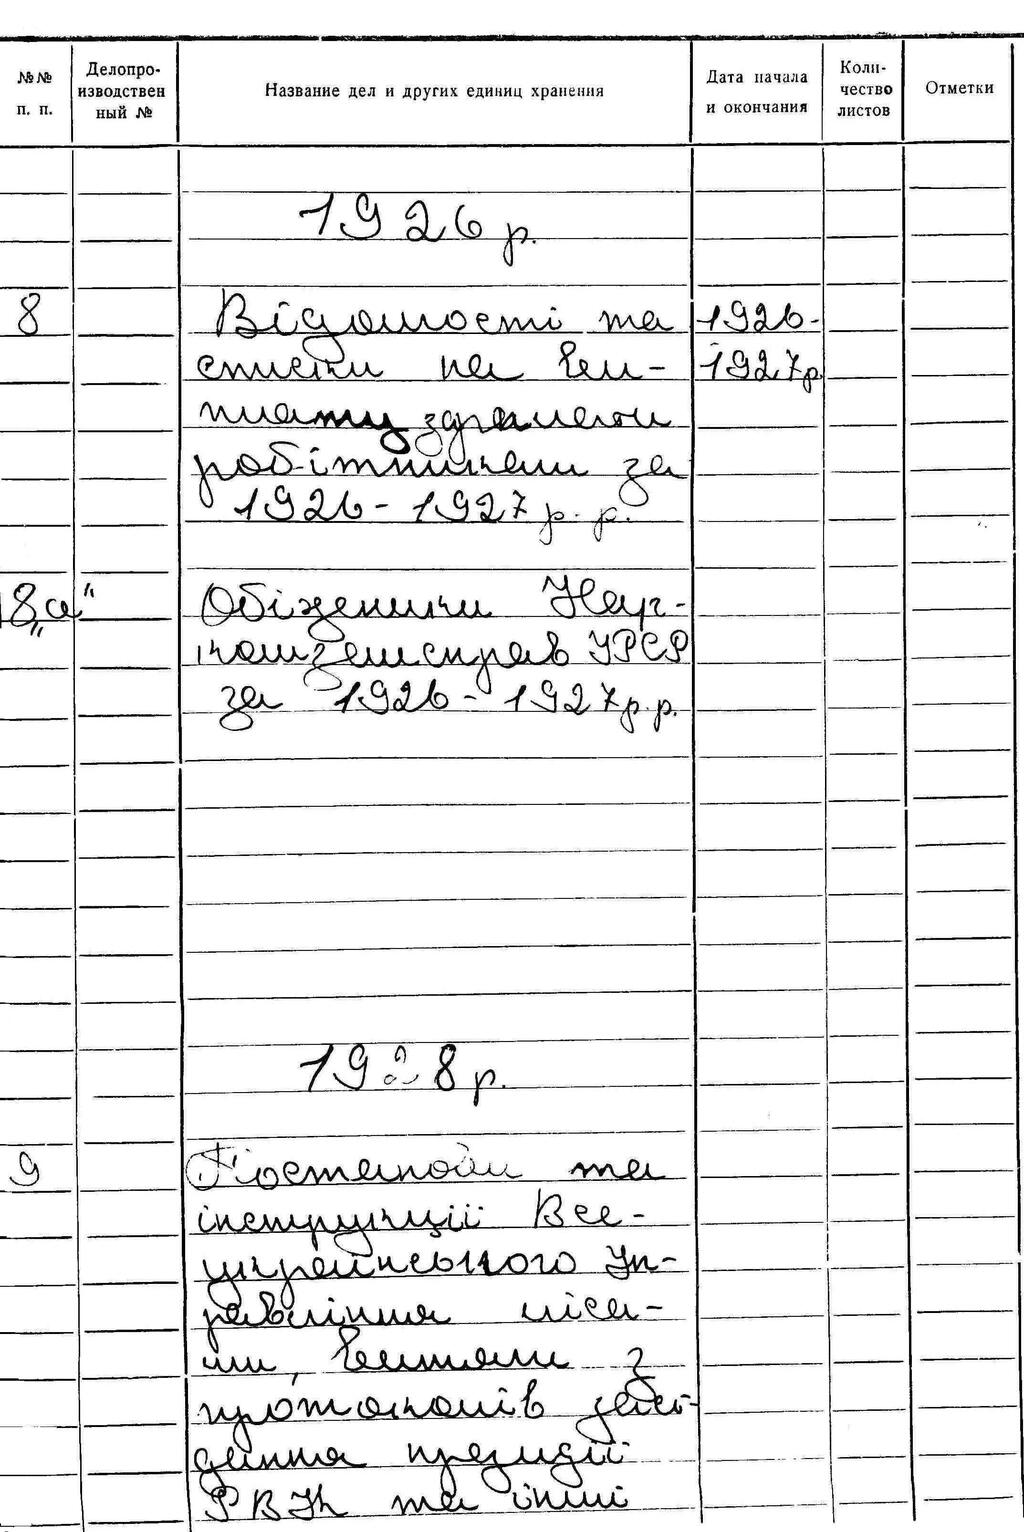 №№ п. п.
Делопро-
изводствен
ный №
Название дел и других единиц хранения
Дата начала
и окончания
Коли-
чество
листов
Отметки
1926 р.
8 Відомості та 1926-
списки на ви- 1927р
плату зарплати
робітникам за
1926-1927 р. р.
8„а" Обіжники Нар-
комземсправ УРСР
за 1926-1927р.р.
1928р.
9 Постанови та
інструкції Все-
українського Уп-
равління ліса-
ми, витяги з
протоколів засі-
дання президії
РВК та інші